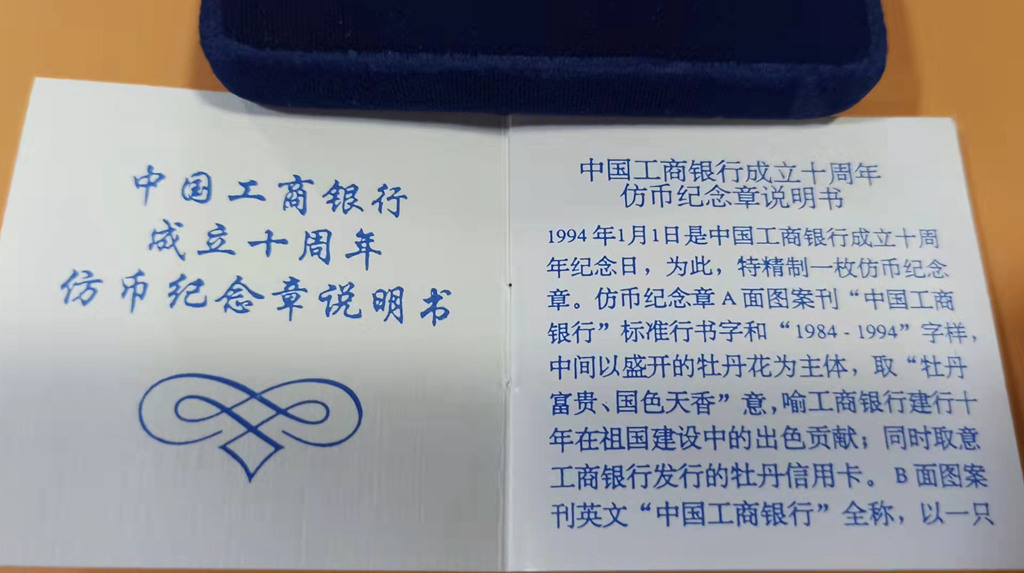 中国工商银行
成立十周年
仿币纪念章说明书
中国工商银行成立十周年
仿币纪念章说明书
1994年1月1日是中国工商银行成立十周
年纪念日，为此，特精制一枚仿币纪念
章。仿币纪念章A面图案刊“中国工商
银行”标准行书字和“1984-1994”字样，
中间以盛开的牡丹花为主体，取“牡丹
富贵、国色天香”意，喻工商银行建行十
年在祖国建设中的出色贡献；同时取意
工商银行发行的牡丹信用卡。B面图案
刊英文“中国工商银行”全称，以一只